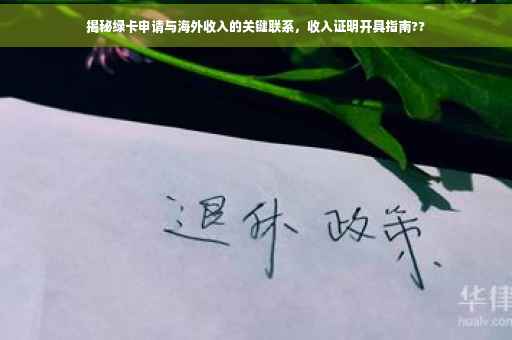 揭秘绿卡申请与海外收入的关键联系，收入证明开具指南??
退休 政策
华律
hualv.com